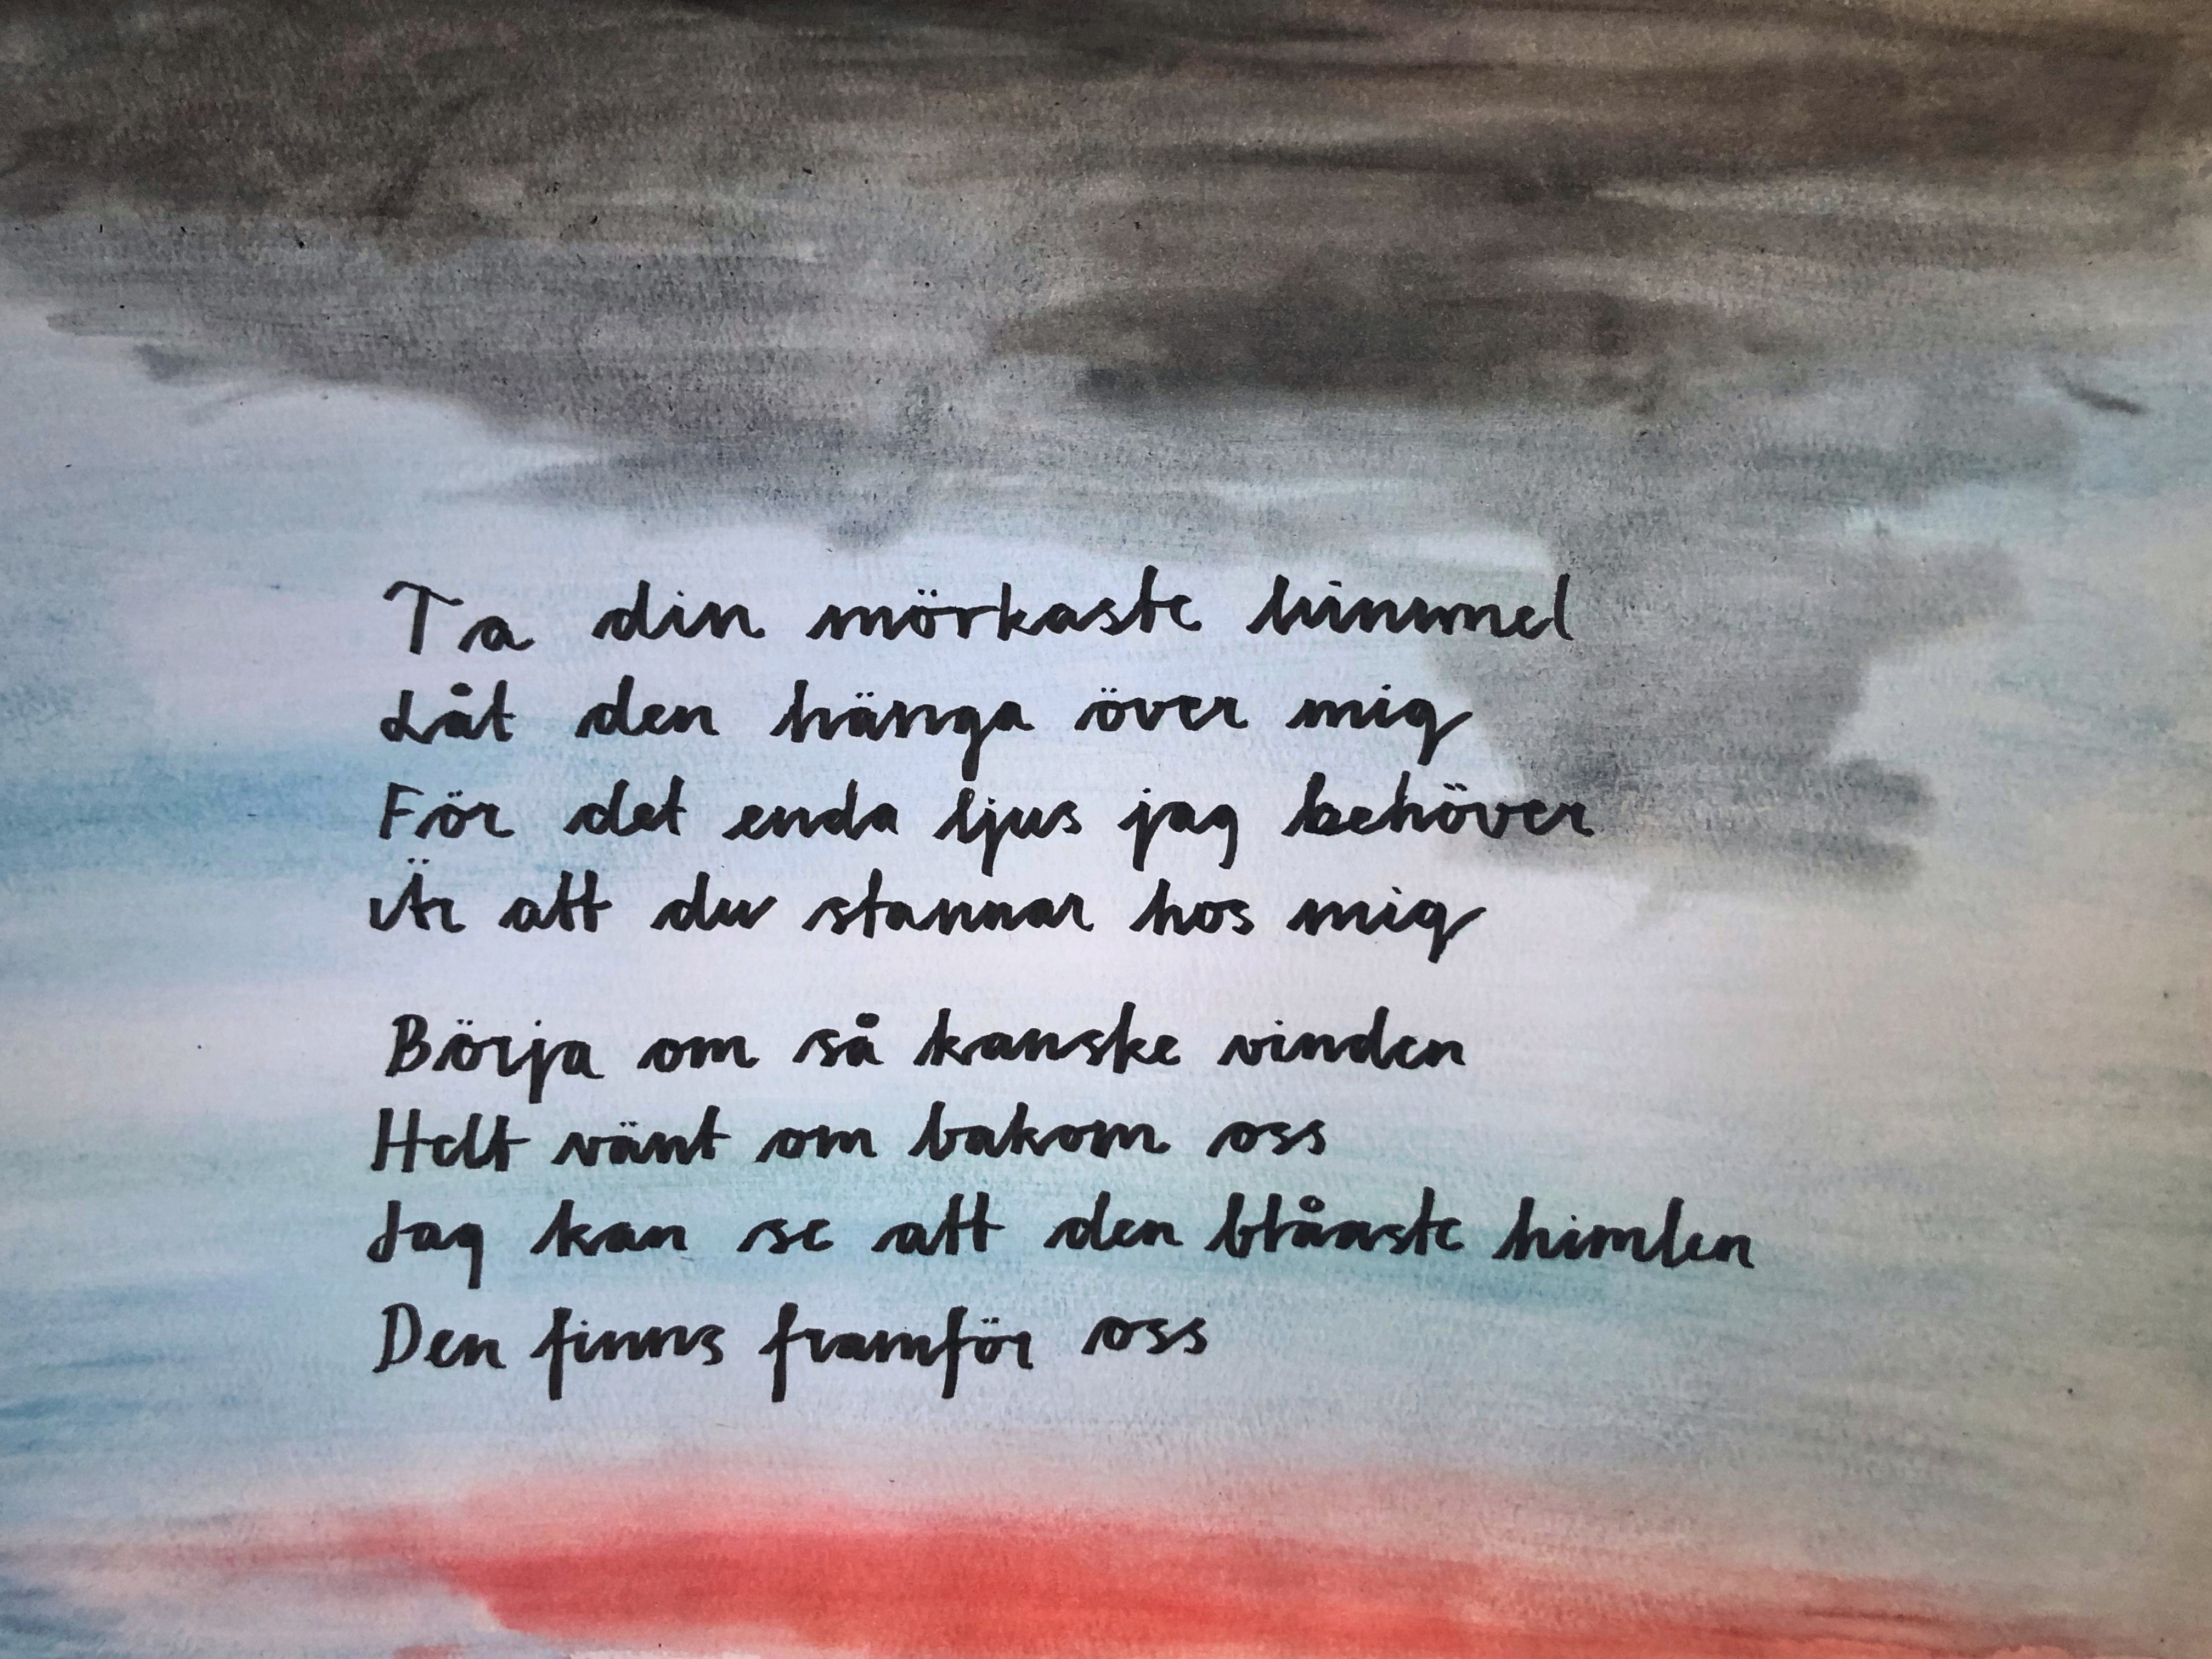 Ta din mörkaste himmel
Låt den hänga över mig
För det enda ljus jag behöver
Är att du stannar hos mig
Börja om så kanske vinden
Helt vänt om bakom oss
Jag kan se att den blåaste himlen
Den finns framför oss